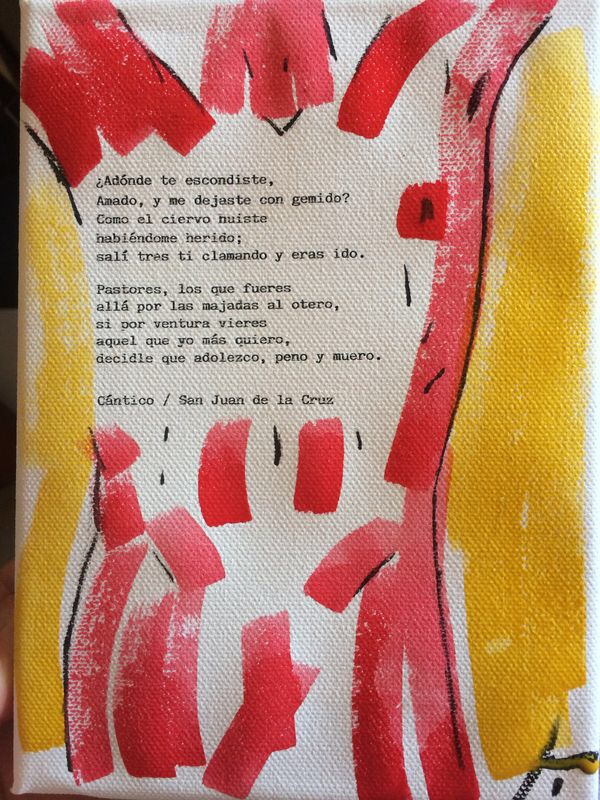 ¿Adónde te escondiste,
Amado, y me dejaste con gemido?
Como el ciervo huiste
habiéndome herido;
salí tras ti clamando y eras ido.
Pastores, los que fueres
allá por las majadas al otero,
si por ventura vieres
aquel que yo más quiero,
decidle que adolezco, peno y muero.
Cántico / San Juan de la Cruz